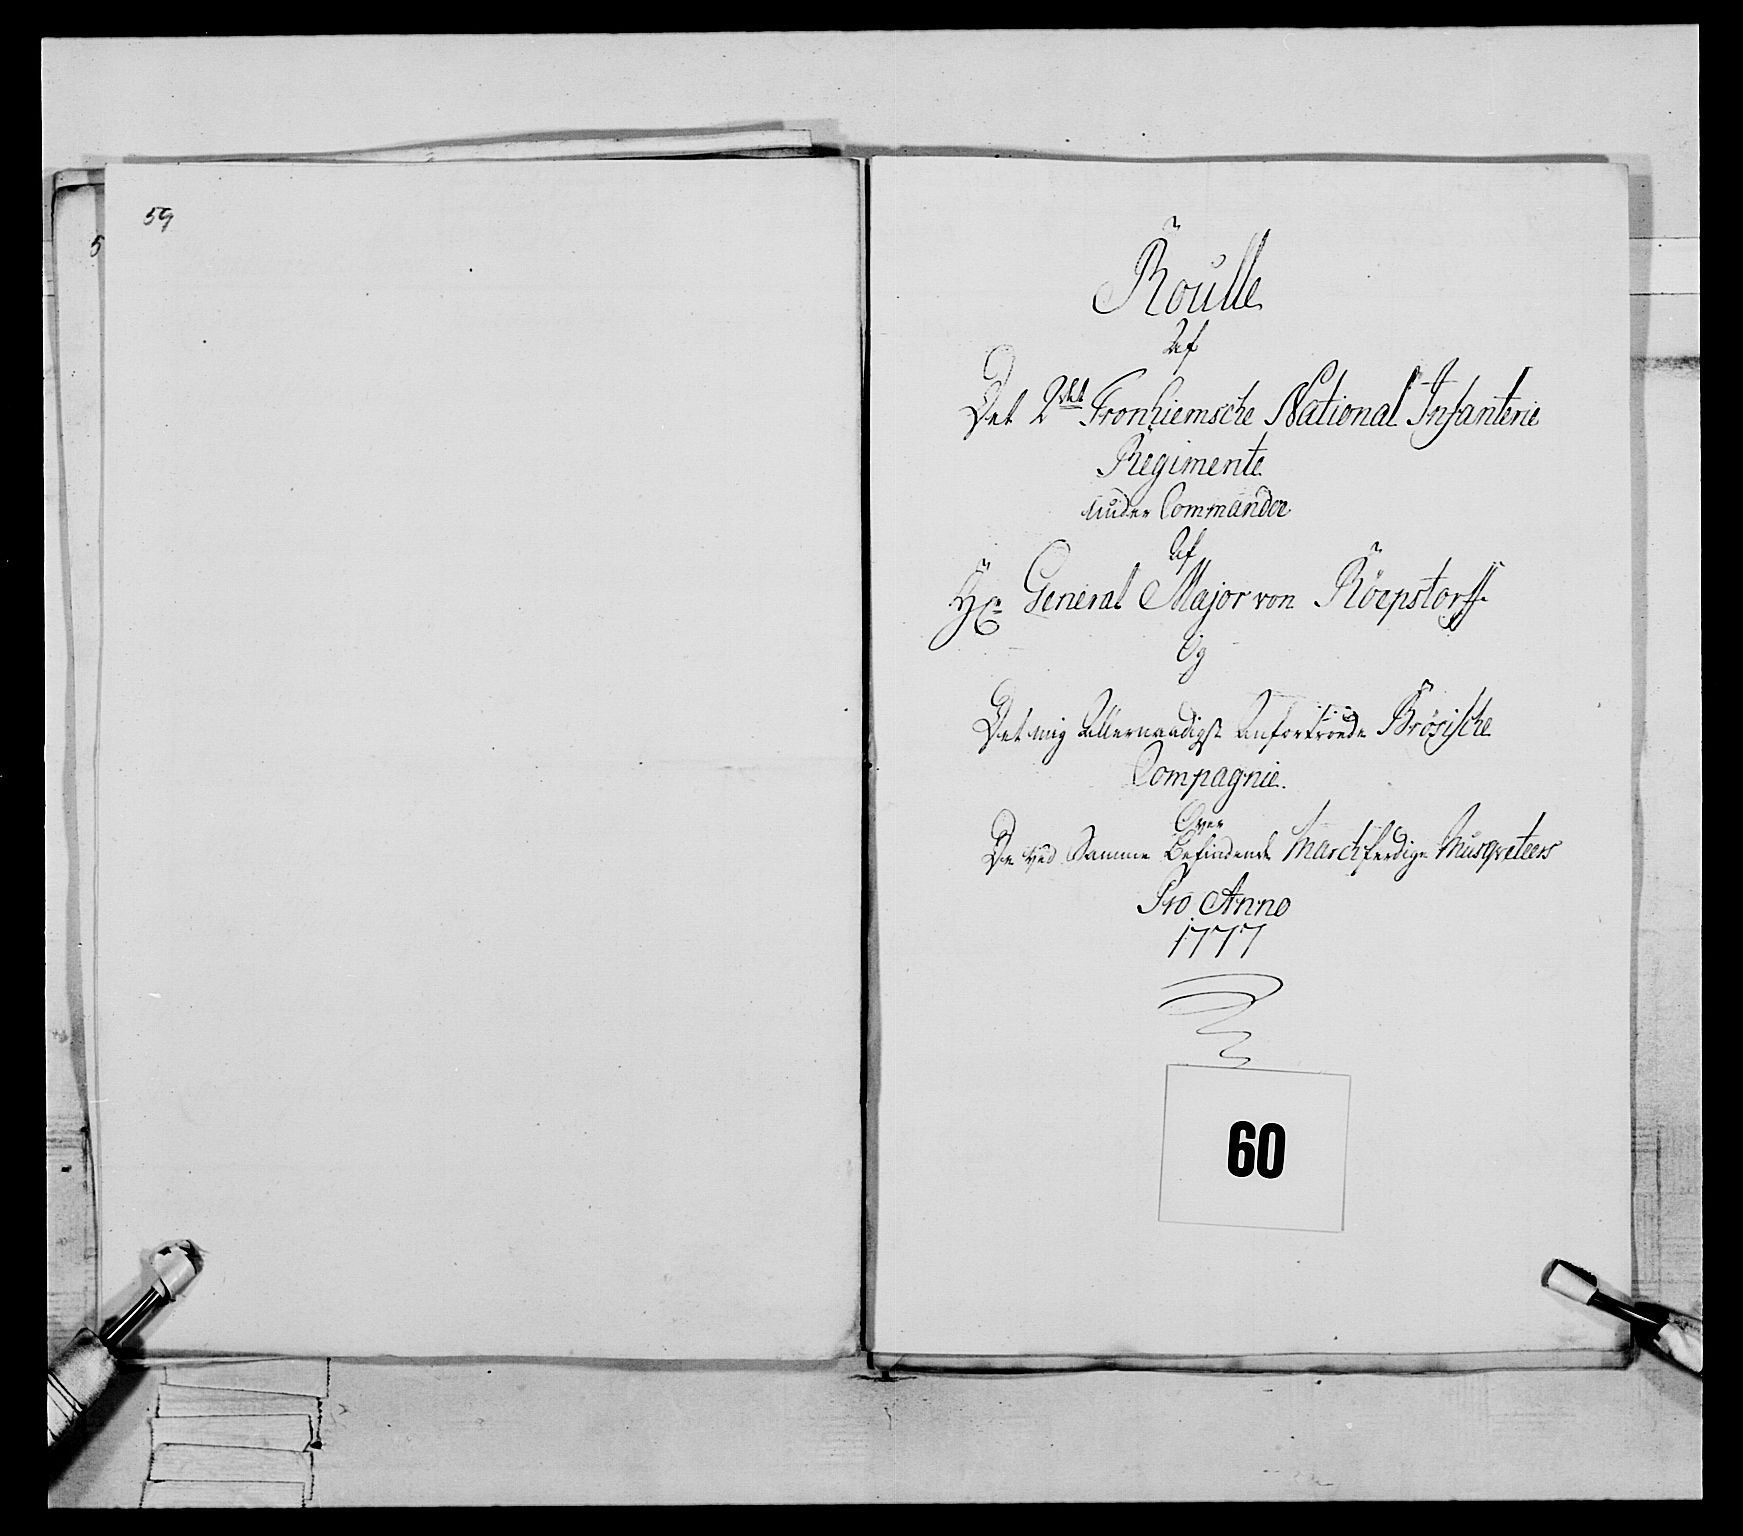 59
5
Roulle
Af
Det 2det Tronhiemsche National Infanterie
Regimente
Under Commandoe
Af
Hr General Major von Röepstorff
Og
Det mig Allernaadigst Anfortroede Brösische
Compagnie.
Over
De ved Samme Befindende Marchferdige Musqveteers
Pro Anno
1777
60